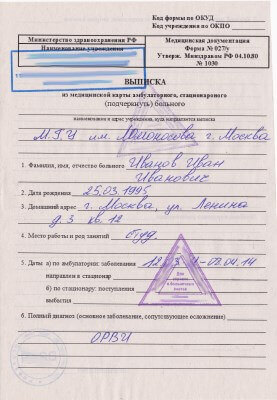 Код формы по ОКУД
Код учреждения по ОКПО
Министерство здравоохранения РФ
Наименование учреждения
Медицинская документация
Форма № 027/у
Утверж. Минздравом РФ 04.10.80
№ 1030
ВЫПИСКА
из медицинской карты амбулаторного, стационарного
(подчеркнуть) больного
наименование и адрес учреждения, куда направляется выписка
МГУ им. Ломоносова г. Москва
1. Фамилия, имя, отчество больного Иванов Иван
Иванович
2. Дата рождения 25.03.1995
3. Домашний адрес г. Москва, ул. Ленина
д. 3 кв. 12
4. Место работы и род занятий студ.
5. Даты: а) по амбулатории: заболевания
02.04.14
направлен в стационар
б) по стационару: поступления
выбытия
Для
справок
и больничных
листов
6. Полный диагноз (основное заболевание, сопутствующее осложнение)
ОРВИ